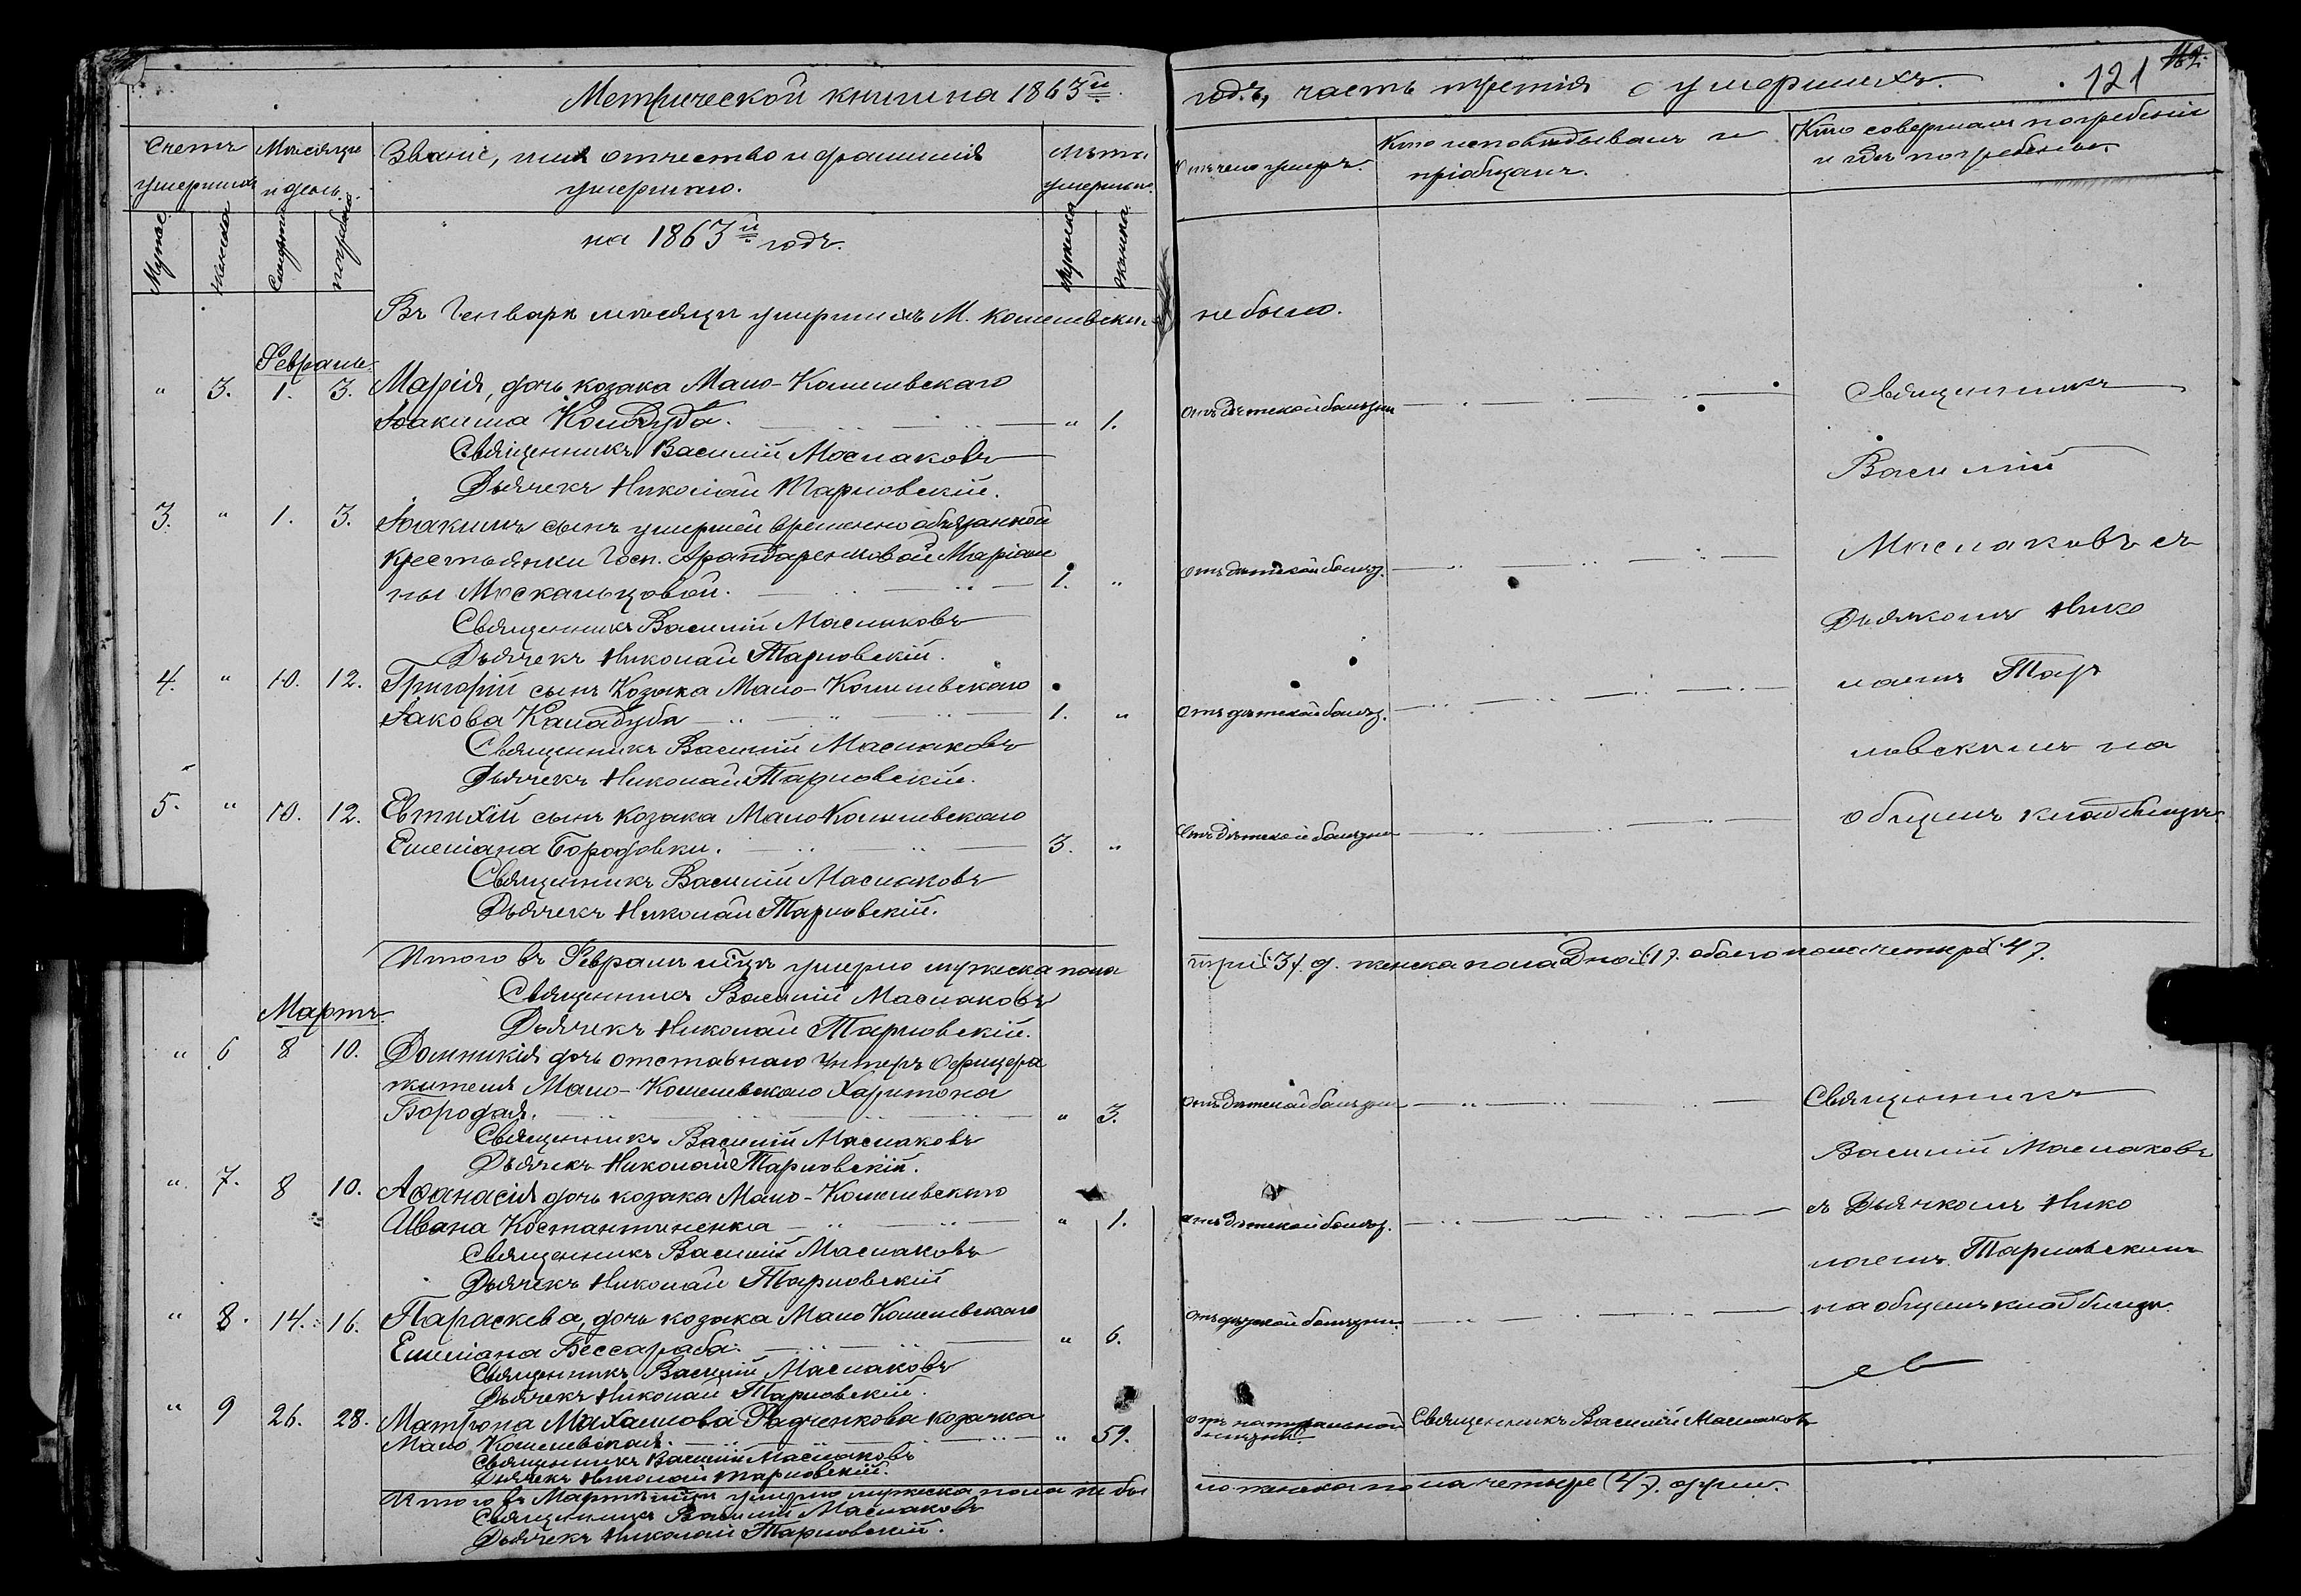 Метрической книги на 1863й
годъ, часть третія о умершихъ.
121
Счетъ умершихъ
Мѣсяцъ и день
Званіе, имя отчество и фамилія умершаго.
Лѣта умершаго.
Отъ чего умеръ.
Кто исповѣдывалъ и пріобщалъ.
Кто совершалъ погребеніе и гдѣ погребены.
Мужес.
женска
Смерти
погребен.
Мужеска
женска.
на 1863й годъ.
Въ Генварѣ мѣсяцѣ умершихъ М. Кошелевски не было.
Февраль.
" 3. 1. 3. Марія, дочь козака Мало-Кошелевскаго
Іоакима Колодуба. " 1. отъ дѣтской болѣзни
Священникъ Василій Маслаковъ
Дьячекъ Николай Тарновскій.
3. " 1. 3. Іоакимъ сынъ умершей временно обязанной
крестьянки Госп. Арандаренковой Маріан
ны Москальцовой. 1. " отъ дѣтской болѣз.
Священникъ Василій Маслаковъ
Дьячекъ Николай Тарновскій.
4. " 10. 12. Григорій сынъ Козака Мало-Кошелевскаго
Іакова Каладуба 1. " отъ дѣтской болѣз.
Священникъ Василій Маслаковъ
Дьячекъ Николай Тарновскій.
5. " 10. 12. Евтихій сынъ козака Мало Кошелевскаго
Емеліана Бородовки. 3. " отъ дѣтской болѣзни
Священникъ Василій Маслаковъ
Дьячекъ Николай Тарновскій.
Священникъ
Василій
Маслаковъ съ
Дьячкомъ Нико
лаемъ Тар
новскимъ на
общемъ кладбищѣ.
Итого въ Февралѣ мцѣ умерло мужеска пола три (3) д. женска пола одна (1). обоего пола четыре (4).
Священникъ Василій Маслаковъ
Дьячекъ Николай Тарновскій.
Мартъ.
" 6 8 10. Домникія дочь отставнаго Унтеръ Офицера
жителя Мало-Кошелевскаго Харитона
Бородая. " 3. отъ дѣтской болѣзни
Священникъ Василій Маслаковъ
Дьячекъ Николай Тарновскій.
" 7. 8 10. Афанасія дочь козака Мало-Кошелевскаго
Ивана Костантиненка " 1. отъ дѣтской болѣз.
Священникъ Василій Маслаковъ
Дьячекъ Николай Тарновскій
" 8. 14. 16. Параскева, дочь козака Мало Кошелевскаго
Емеліана Бессараба. " 6. отъ дѣтской болѣзни.
Священникъ Василій Маслаковъ
Дьячекъ Николай Тарновскій.
" 9 26. 28. Матрона Михаилова Радченкова козачка
Мало Кошелевская. " 59. отъ натуральной болѣзни. Священникъ Василій Маслаковъ
Священникъ Василій Маслаковъ
Дьячекъ Николай Тарновскій.
Священникъ
Василій Маслаковъ
съ Дьячкомъ Нико
лаемъ Тарновскимъ
на общемъ кладбищѣ.
Итого въ Мартѣ мцѣ умерло мужеска пола не бы
ло женска пола четыре (4). души.
Священникъ Василій Маслаковъ
Дьячекъ Николай Тарновскій.